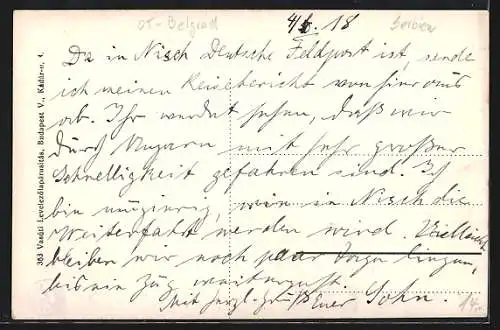 OT-Belgrad
4/6. 18
Serbien
Da in Nisch Deutsche Feldpost ist, sende
ich meinen Reisebericht von hier aus
ab. Ihr werdet sehen, daß wir
durch Ungarn mit sehr großer
Schnelligkeit gefahren sind. Ich
bin neugierig, wie in Nisch die
Weiterfahrt werden wird. Vielleicht
bleiben wir noch paar Tage liegen,
bis ein Zug weitergeht.
Mit herzl. Grüßen Euer Sohn.
14.-
363 Vasúti Levelezőlapárusítás, Budapest V., Kádár-u. 4.